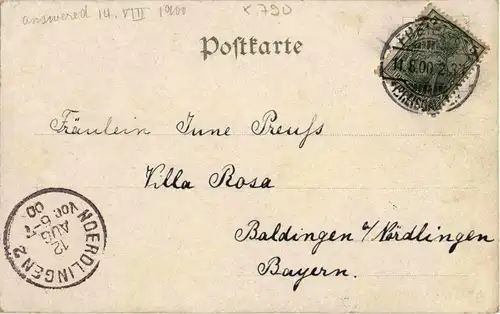 answered 14. VIII 1900
x 790
Postkarte
11.8.00
Fräulein Tune Preuß
Villa Rosa
Baldingen a/Nördlingen
Bayern.
NOERDLINGEN 2
12
AUG
VOR. 6-7
00